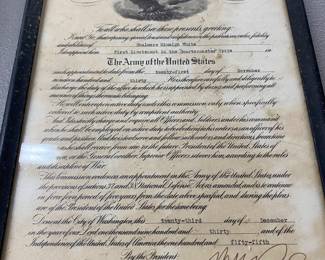 To all who shall see these presents, greeting:
Know Ye, that reposing special trust and confidence in the patriotism, valor, fidelity
and abilities of Chalmers White
I do appoint him First Lieutenant in the Quartermaster Corps in
The Army of the United States
such appointment to date from the twenty-first day of November
nineteen hundred and thirty. He is therefore carefully and diligently to
discharge the duty of the office to which he is appointed by doing and performing all
manner of things thereunto belonging.
He will enter upon active duty under this commission only when specifically
ordered to such active duty by competent authority.
And I do strictly charge and require all Officers and Soldiers under his command
when he shall be employed on active duty to be obedient to his orders as an officer of his
grade and position. And he is to observe and follow such orders and directions, from time
to time, as he shall receive from me, or the future President of the United States of
America, or the General or other Superior Officers set over him, according to the rules
and discipline of War.
This Commission evidences an appointment in the Army of the United States
under the provisions of section 37 and 38 National Defense Act, as amended, and is to continue
in force for a period of five years from the date above specified, and during the pleasure
of the President of the United States for the time being.
Done at the City of Washington, this twenty-third day of December
in the year of our Lord one thousand nine hundred and thirty and of the
Independence of the United States of America the one hundred and fifty-fifth
By the President: